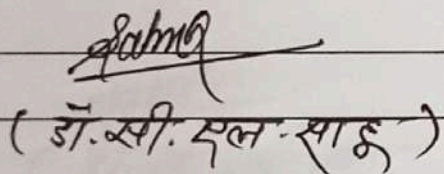 (डॉ. सी. एल. साहू)